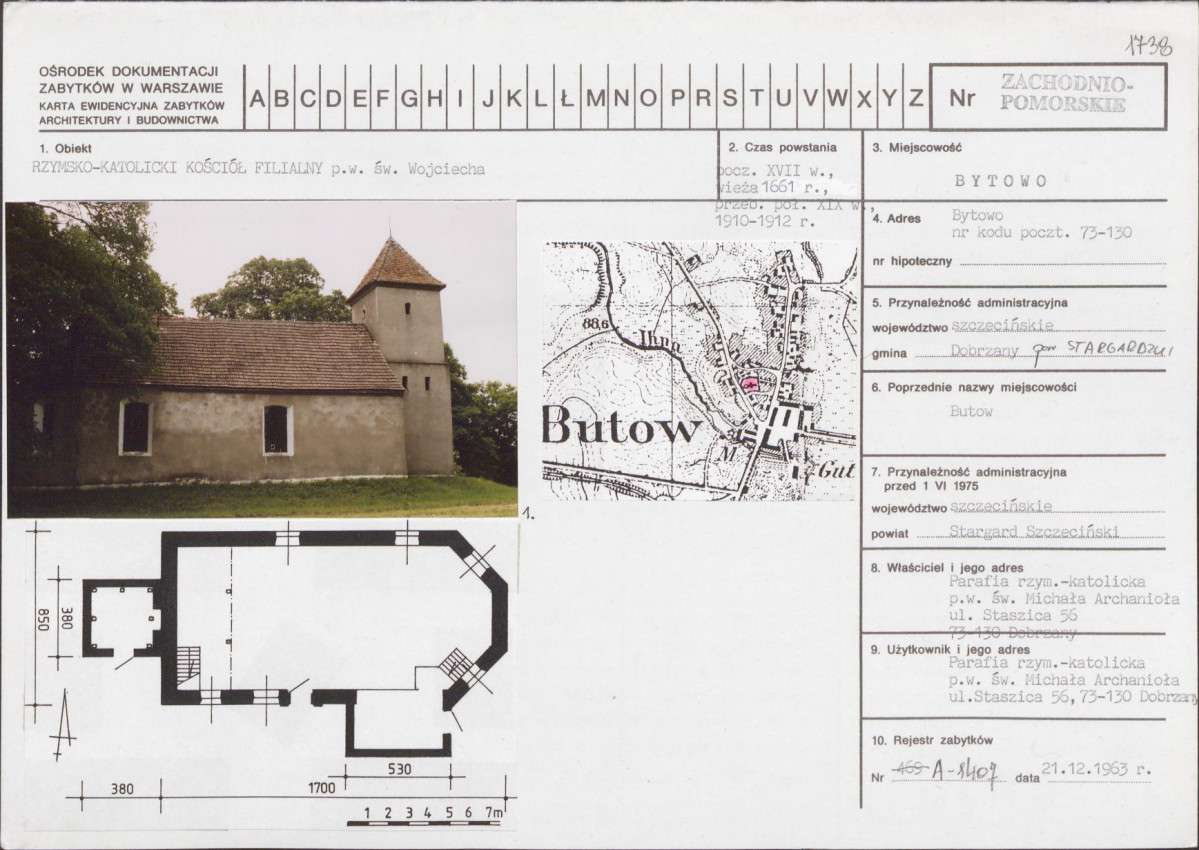 1738
OŚRODEK DOKUMENTACJI
ZABYTKÓW W WARSZAWIE
KARTA EWIDENCYJNA ZABYTKÓW
ARCHITEKTURY I BUDOWNICTWA
A B C D E F G H I J K L Ł M N O P R S T U V W X Y Z
Nr
ZACHODNIO-
POMORSKIE
1. Obiekt
RZYMSKO-KATOLICKI KOŚCIÓŁ FILIALNY p.w. św. Wojciecha
2. Czas powstania
pocz. XVII w.,
wieża 1661 r.,
przeb. poł. XIX w.,
1910-1912 r.
3. Miejscowość
BYTOWO
4. Adres
Bytowo
nr kodu poczt. 73-130
nr hipoteczny
5. Przynależność administracyjna
województwo szczecińskie
gmina Dobrzany pow STARGARDZKI
6. Poprzednie nazwy miejscowości
Butow
7. Przynależność administracyjna
przed 1 VI 1975
województwo szczecińskie
powiat Stargard Szczeciński
8. Właściciel i jego adres
Parafia rzym.-katolicka
p.w. św. Michała Archanioła
ul. Staszica 56
73-130 Dobrzany
9. Użytkownik i jego adres
Parafia rzym.-katolicka
p.w. św. Michała Archanioła
ul.Staszica 56,73-130 Dobrzany
10. Rejestr zabytków
Nr 469 A-1407 data 21.12.1963 r.
88,6
Ihna
Butow
M
Gut
1.
850
380
380
530
1700
1 2 3 4 5 6 7m